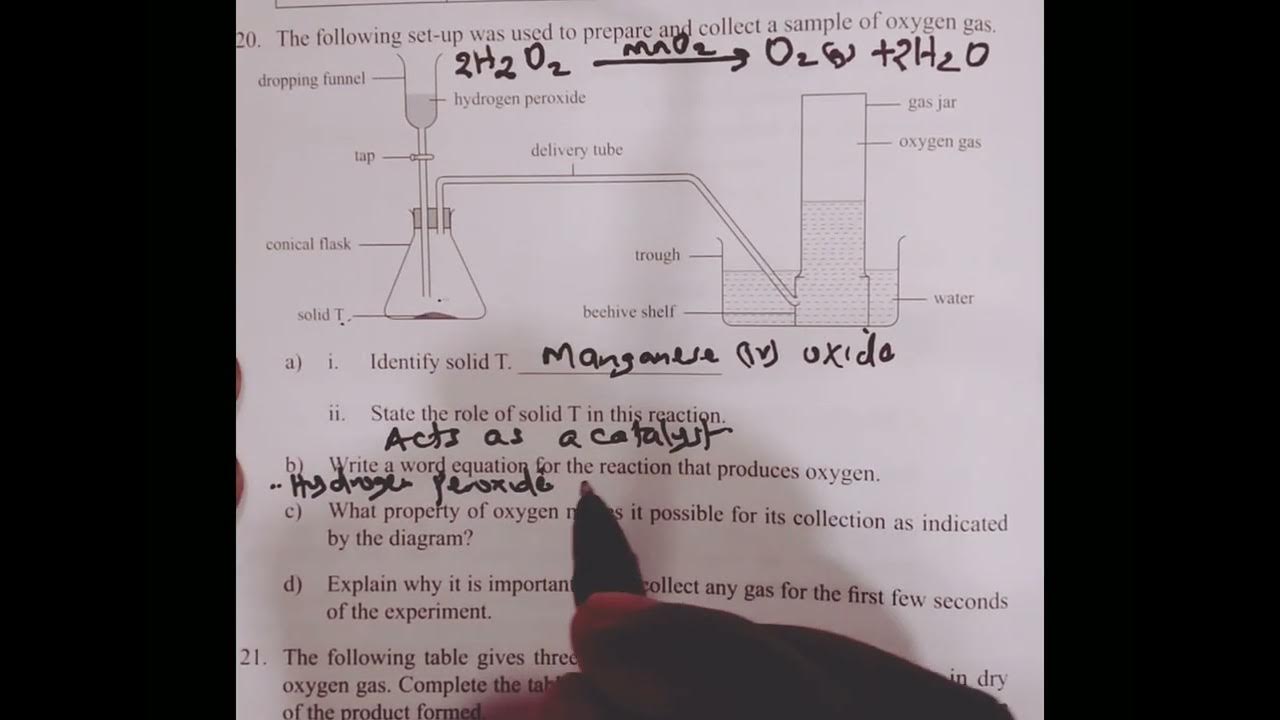 20. The following set-up was used to prepare and collect a sample of oxygen gas.
2H2O2 MnO2 → O2(g) + 2H2O
dropping funnel
hydrogen peroxide
gas jar
oxygen gas
tap
delivery tube
conical flask
trough
solid T
beehive shelf
water
a) i. Identify solid T. Manganese (IV) oxide
ii. State the role of solid T in this reaction.
Acts as a catalyst
b) Write a word equation for the reaction that produces oxygen.
Hydrogen peroxide
c) What property of oxygen it possible for its collection as indicated
by the diagram?
d) Explain why it is important collect any gas for the first few seconds
of the experiment.
21. The following table gives three in dry
oxygen gas. Complete the
of the product formed.